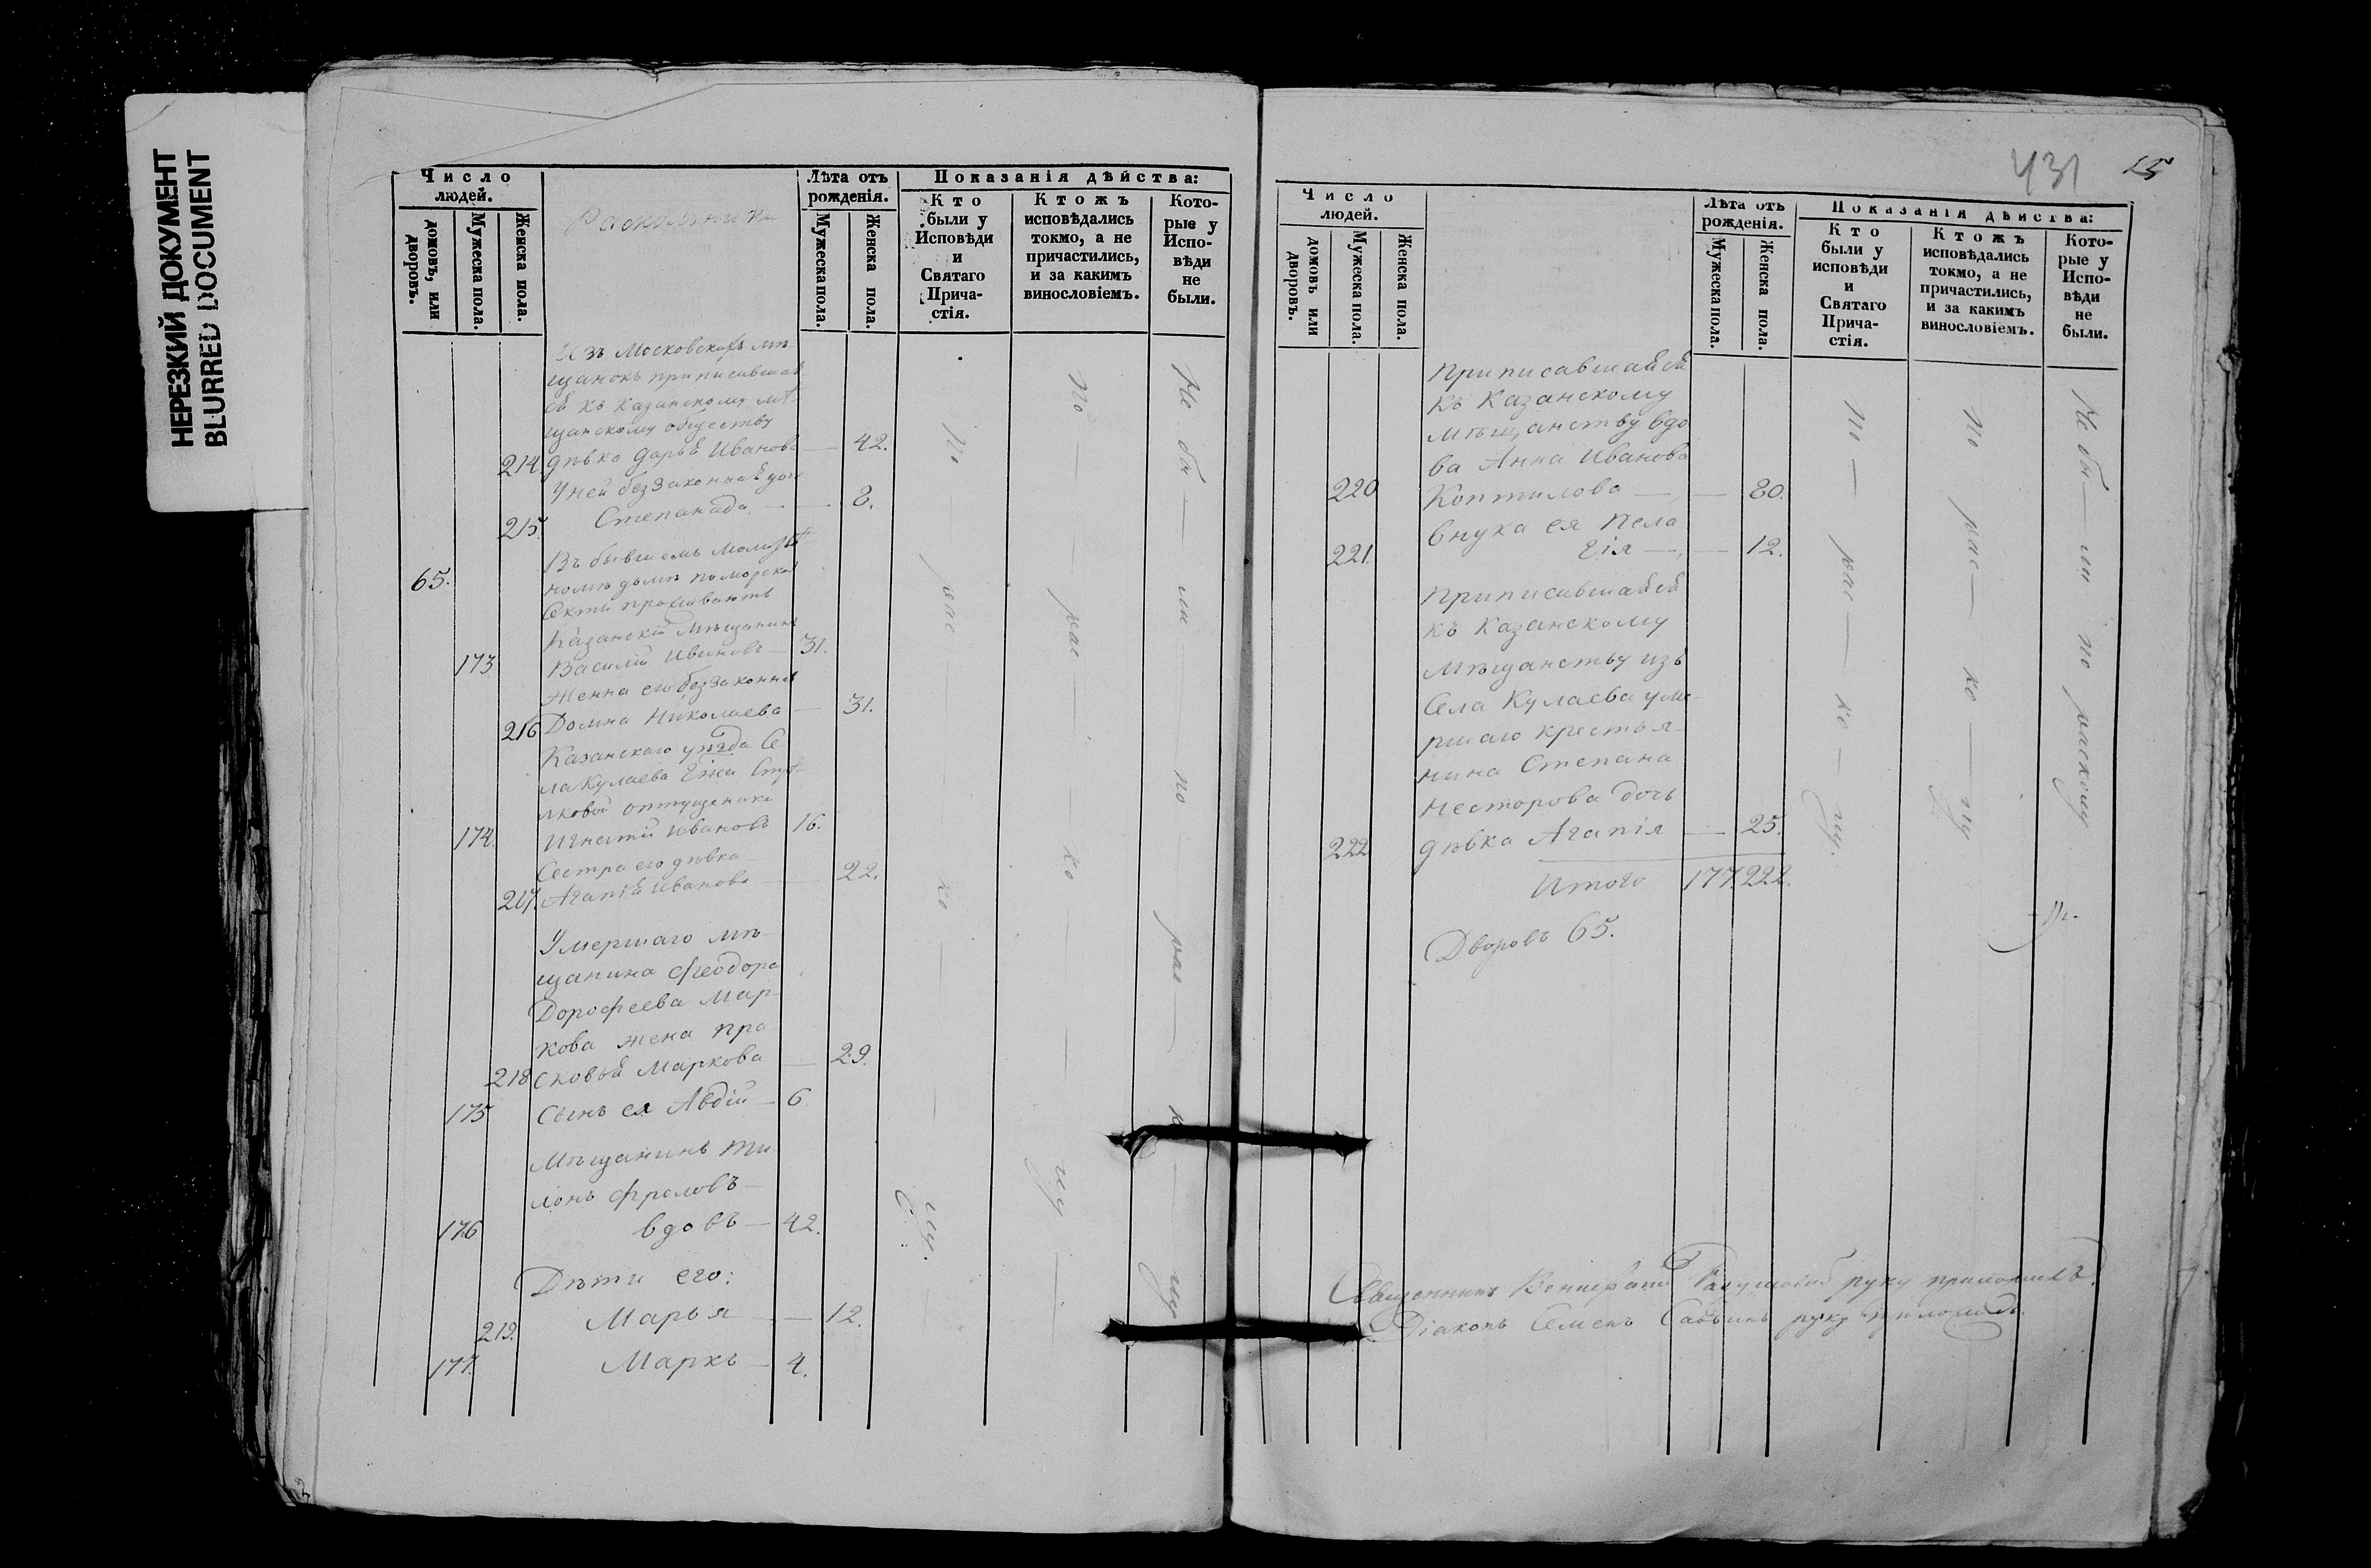 НЕРЕЗКИЙ ДОКУМЕНТ
BLURRED DOCUMENT
Число
людей.
домовъ, или
дворовъ.
Мужеска пола.
Женска пола.
Раскольники
Лѣта отъ
рожденія.
Мужеска пола.
Женска пола.
Показанія дѣйства:
Кто
были у
Исповѣди
и
Святаго
Прича-
стія.
Ктожъ
исповѣдались
токмо, а не
причастились,
и за какимъ
винословіемъ.
Кото-
рые у
Испо-
вѣди
не
были.
Изъ Московскихъ мѣ
щанокъ приписавшая
ся къ Казанскому мѣ-
щанскому обществу
214. дѣвка Дарья Иванова — 42.
У ней беззаконная дочь
215. Степанида — 8.
65. Въ бывшемъ молит
номъ домѣ поморской
секты проживаютъ
Казанскій мѣщанинъ
173 Василій Ивановъ — 31.
Женна его беззаконная
216 Домна Николаева — 31.
Казанскаго уѣзда Се
ла Кулаева Гжи
отпущеникъ
174. Игнатій Ивановъ 16.
Сестра его дѣвка
217. Агапія Иванова — 22.
Умершаго мѣ-
щанина Феодора
Дорофеева Мар-
кова жена Пра-
218 сковья Маркова — 29.
175 Сынъ ея Авдій — 6
Мѣщанинъ Ти
монъ Фроловъ —
176 вдовъ — 42.
Дѣти его:
219. Марья — 12.
177. Маркъ — 4.
По рас ко лу.
По рас ко лу
Не бы ли по рас ко лу
431 25
Число
людей.
домовъ или
дворовъ.
Мужеска пола.
Женска пола.
Лѣта отъ
рожденія.
Мужеска пола.
Женска пола.
Показанія дѣйства:
Кто
были у
исповѣди
и
Святаго
Прича-
стія.
Ктожъ
исповѣдались
токмо, а не
причастились,
и за какимъ
винословіемъ.
Кото-
рые у
Испо-
вѣди
не
были.
приписавшаяся
къ Казанскому
мѣщанству вдо
ва Анна Иванова
220 Коптилова — 80.
внука ея Пела
221. гія — 12.
приписавшаяся
къ Казанскому
мѣщанству изъ
Села Кулаева уме
ршаго крестья-
нина Степана
Несторова дочь
222 дѣвка Агапія — 25.
Итого 177. 222.
Дворовъ 65.
По — рас — ко — лу.
По рас — ко — лу
Не бы — ли по расколу
Священникъ руку приложилъ.
Діаконъ Семенъ руку приложилъ.